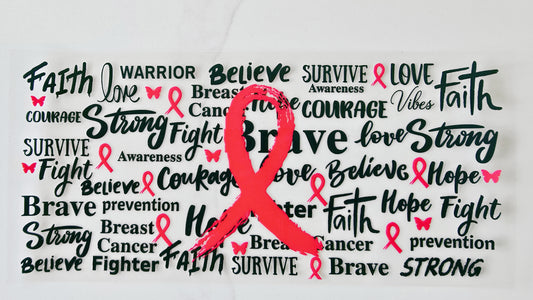 Faith love WARRIOR Believe SURVIVE Awareness LOVE Vibes Faith
COURAGE Strong Breast Cancer Hope COURAGE
SURVIVE Awareness Fight Brave love Strong
Fight Believe Courage Love Believe Hope
Brave prevention Hope Fighter Faith Hope Fight
Strong Breast Cancer Breast Cancer prevention
Believe Fighter FAITH SURVIVE Brave STRONG